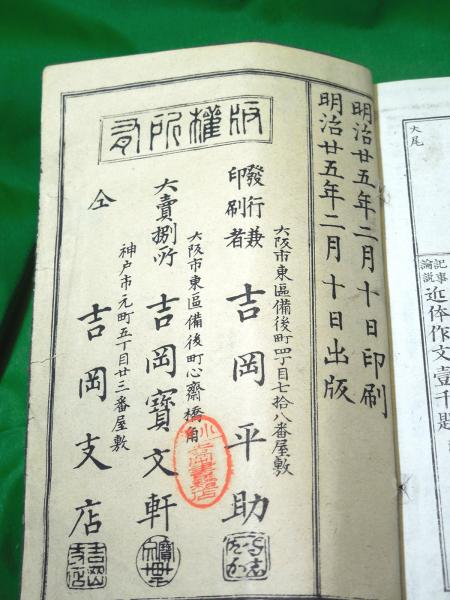 大尾
記事
論説
近体作文壹千題
明治廿五年二月十日印刷
明治廿五年二月十日出版
版權所有
大阪市東區備後町四丁目七拾八番屋敷
發行兼
印刷者
吉岡平助
大阪市東區備後町心齋橋角
大賣捌所
吉岡寶文軒
神戸市元町五丁目廿三番屋敷
仝
吉岡支店